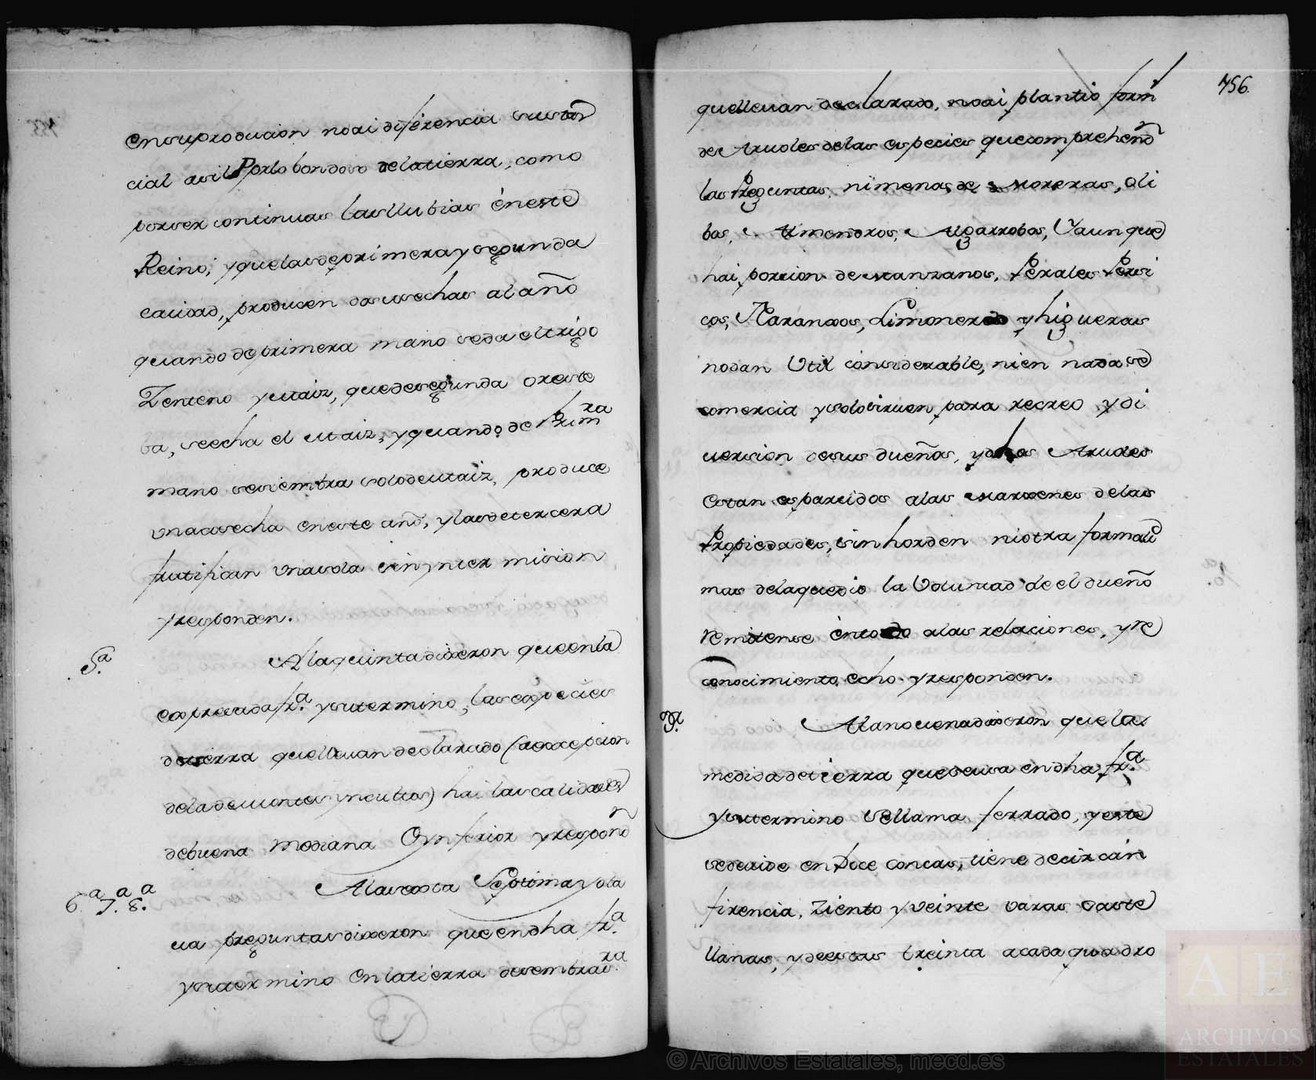 en su produccion no ai diferencia sustan
cial asi Por lo bondoso de la tierra, como
por ser continuas las llubias én este
Reino, y que las de primera y segunda
calidad, producen dos cosechas al año
quando de primera mano se da el trigo
Zenteno y maiz, que de segunda o reste
ba, se echa el maiz, y quando de Prim.ra
mano se siembra solo de maiz, produce
una cosecha en este año, y las de tercera
frutifican una sola sin yntermision
y responden.
5.a A la quinta dixeron que en la
expresada fr.a y su termino, las especies
de tierra que llevan declarado (a excepcion
de la de montes yncultos) hai las calidades
de buena Mediana O ynferior y respond.n
6.a 7.a 8.a A la sexta Septima y octa
va preguntas dixeron que en dha fr.a
y su termino en la tierra de sembradu.ra
756.
que llevan declarado, no ai plantio form
de Arvoles de las especies que comprehend.n
las Preguntas, ni menos de Moreras, Oli
bos, Almendros, Algarrobos, Y aunque
hai porcion de Manzanos, Perales Persi
cos, Naranxos, Limoneros y higueras
no dan Util considerable, ni en nada se
comercia y solo sirven para recreo y di
version de sus dueños, y dhos Arvoles
estan esparcidos a las Marxenes de las
Propiedades, sin horden ni otra formali
mas de la que dio la Voluntad de el dueño
remitense én todo a las relaciones, y re
conocimiento echo y responden.
9.a A la novena dixeron que la
medida de tierra que se usa en dha fr.a
y su termino se llama ferrado, y este
se divide en Doce concas, tiene de circun
firencia, Ziento y veinte varas Caste
llanas, y de estas treinta a cada quadro
© Archivos Estatales, mecd.es
AE
ARCHIVOS
ESTATALES